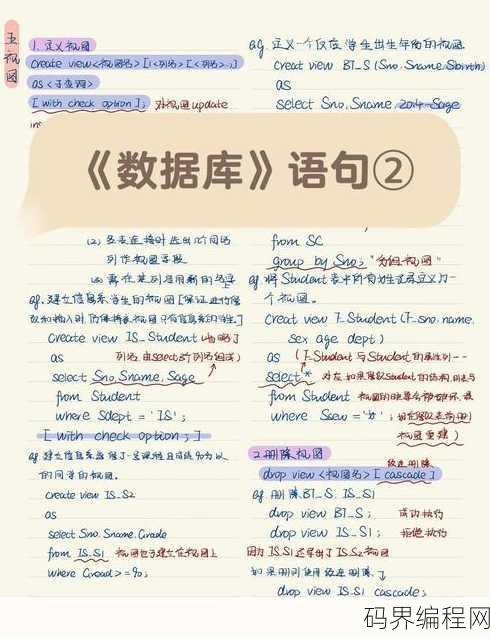 五视图
1.定义视图
create view<视图名>[(<列名>[<列名>…)]
as<子查询>
[with check option]; 对视图update
《数据库》语句②
(2) 多表连接时选出几个同名
列作视图字段
(3) 需在某列启用新的名字
eg. 建立信息系学生的视图[保证进行修
改和插入时仍保持该视图只有信息系的学生]
create view IS_Student 省略了
as 列名由select的列名组成)
select Sno,Sname,Sage
from Student
where Sdept = 'IS';
[with check option;]
的同学的视图.
create view IS_S2
as
select Sno.Sname.Grade
from IS_S1 视图也可建立在视图上
where Gread>=90;
eg. 定义一个反应学生出生年份的视图
creat view BT_S (Sno, Sname, Sbirth)
as
select Sno, Sname, 2014-Sage
from SC
group by Sno; "分组视图"
eg. 将Student表中所有女生记录定义为一
个视图.
creat view F_Student (F_sno, name,
sex age dept)
as (F_Student与Student的属性列一一
select * 对应,如果修改Student的结构,则表与
from Student
where Ssex='女';
视图重建)
2.删除视图 级连删除
drop view<视图名>[cascade]
eg. 删除BT_S, IS_S1
drop view BT_S; 成功执行
drop view IS_S1; 拒绝执行
因为IS_S1还导出了IS_S2视图
如果删则使用级连删除↓
drop view IS_S1 cascade;
码界编程网